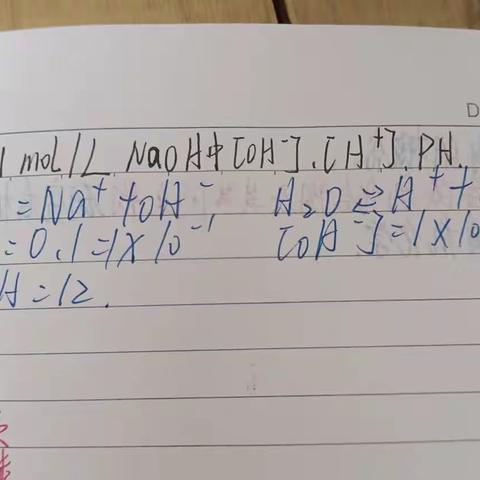 D
1 mol/L NaOH中[OH⁻].[H⁺].PH.
=Na⁺+OH⁻, H₂O⇌H⁺+
=0.1=1×10⁻¹ [OH⁻]=1×10
H=12.